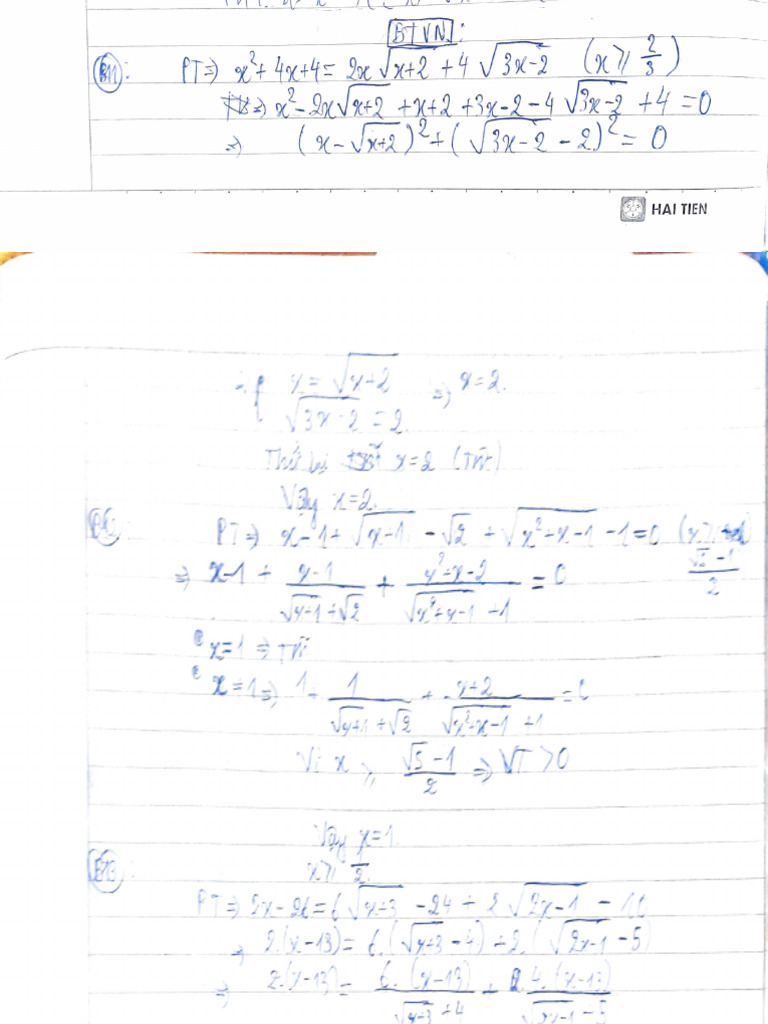 BTVN:
B11: PT => x² + 4x + 4 = 2x√(x+2) + 4√(3x-2) (x ≥ 2/3)
=> x² - 2x√(x+2) + x + 2 + 3x - 2 - 4√(3x-2) + 4 = 0
=> (x - √(x+2))² + (√(3x-2) - 2)² = 0
HAI TIEN
x = √(x+2) => x = 2.
√(3x-2) = 2
Thử lại x = 2 (TM)
Vậy x = 2.
PT => x - 1 + √(x+1) - √2 + √(x²+x-1) - 1 = 0 (x ≥ (√5-1)/2)
=> x-1 + (x-1)/(√(x+1)+√2) + (x²+x-2)/(√(x²+x-1)+1) = 0
x=1 => TM
x=1 => 1 + 1/(√(x+1)+√2) + (x+2)/(√(x²+x-1)+1) = 0
Vì x ≥ (√5-1)/2 => VT > 0
Vậy x = 1
B13: x ≥ 1/2
PT => 2x - 26 = 6√(x+3) - 24 + 2√(2x-1) - 10
=> 2.(x-13) = 6.(√(x+3) - 4) + 2.(√(2x-1) - 5)
=> 2.(x-13) = 6.(x-13)/(√(x+3)+4) + 4.(x-13)/(√(2x-1)+5)